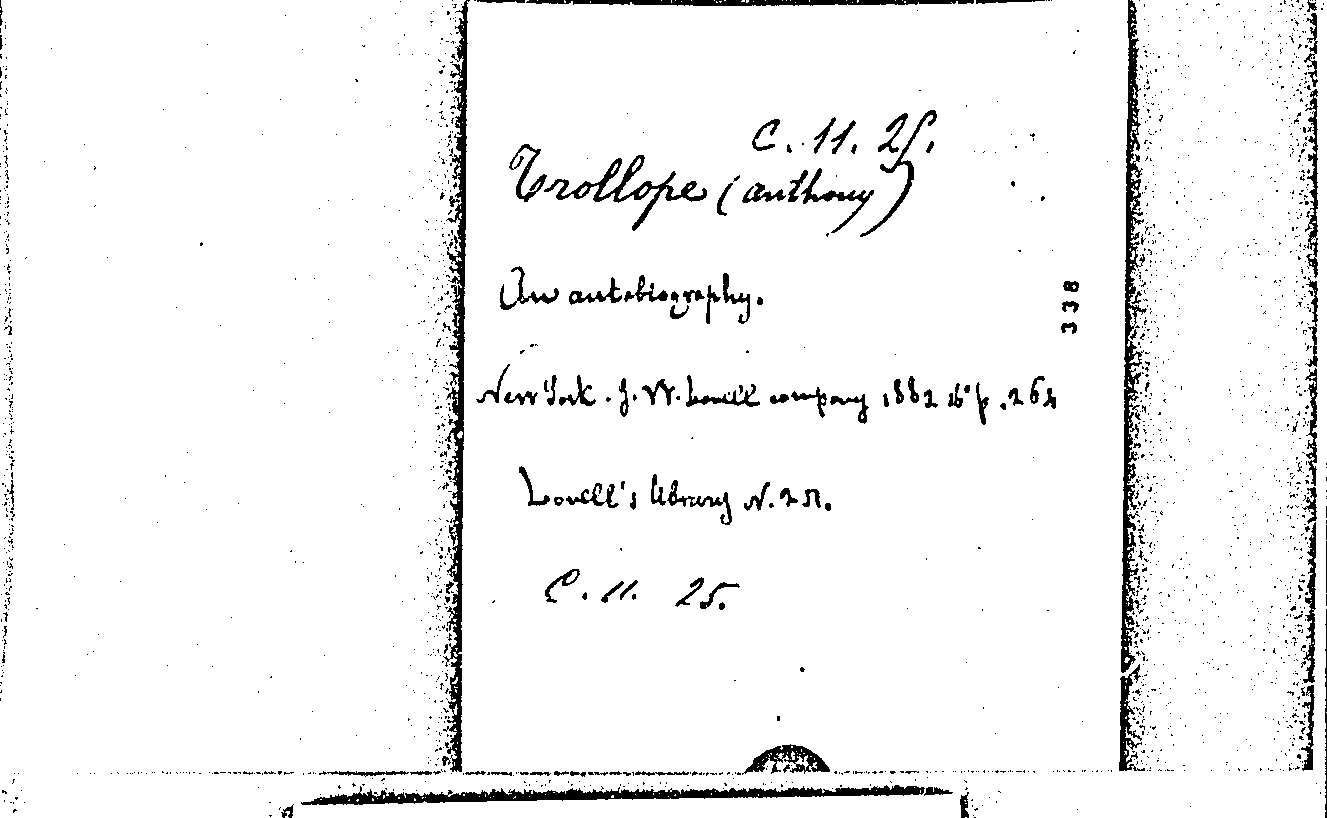 C. 11. 25.
Trollope (Anthony)
An autobiography.
338
New York. J. W. Lovell company 1882 16° p. 264
Lovell's library N. 251.
C. 11. 25.